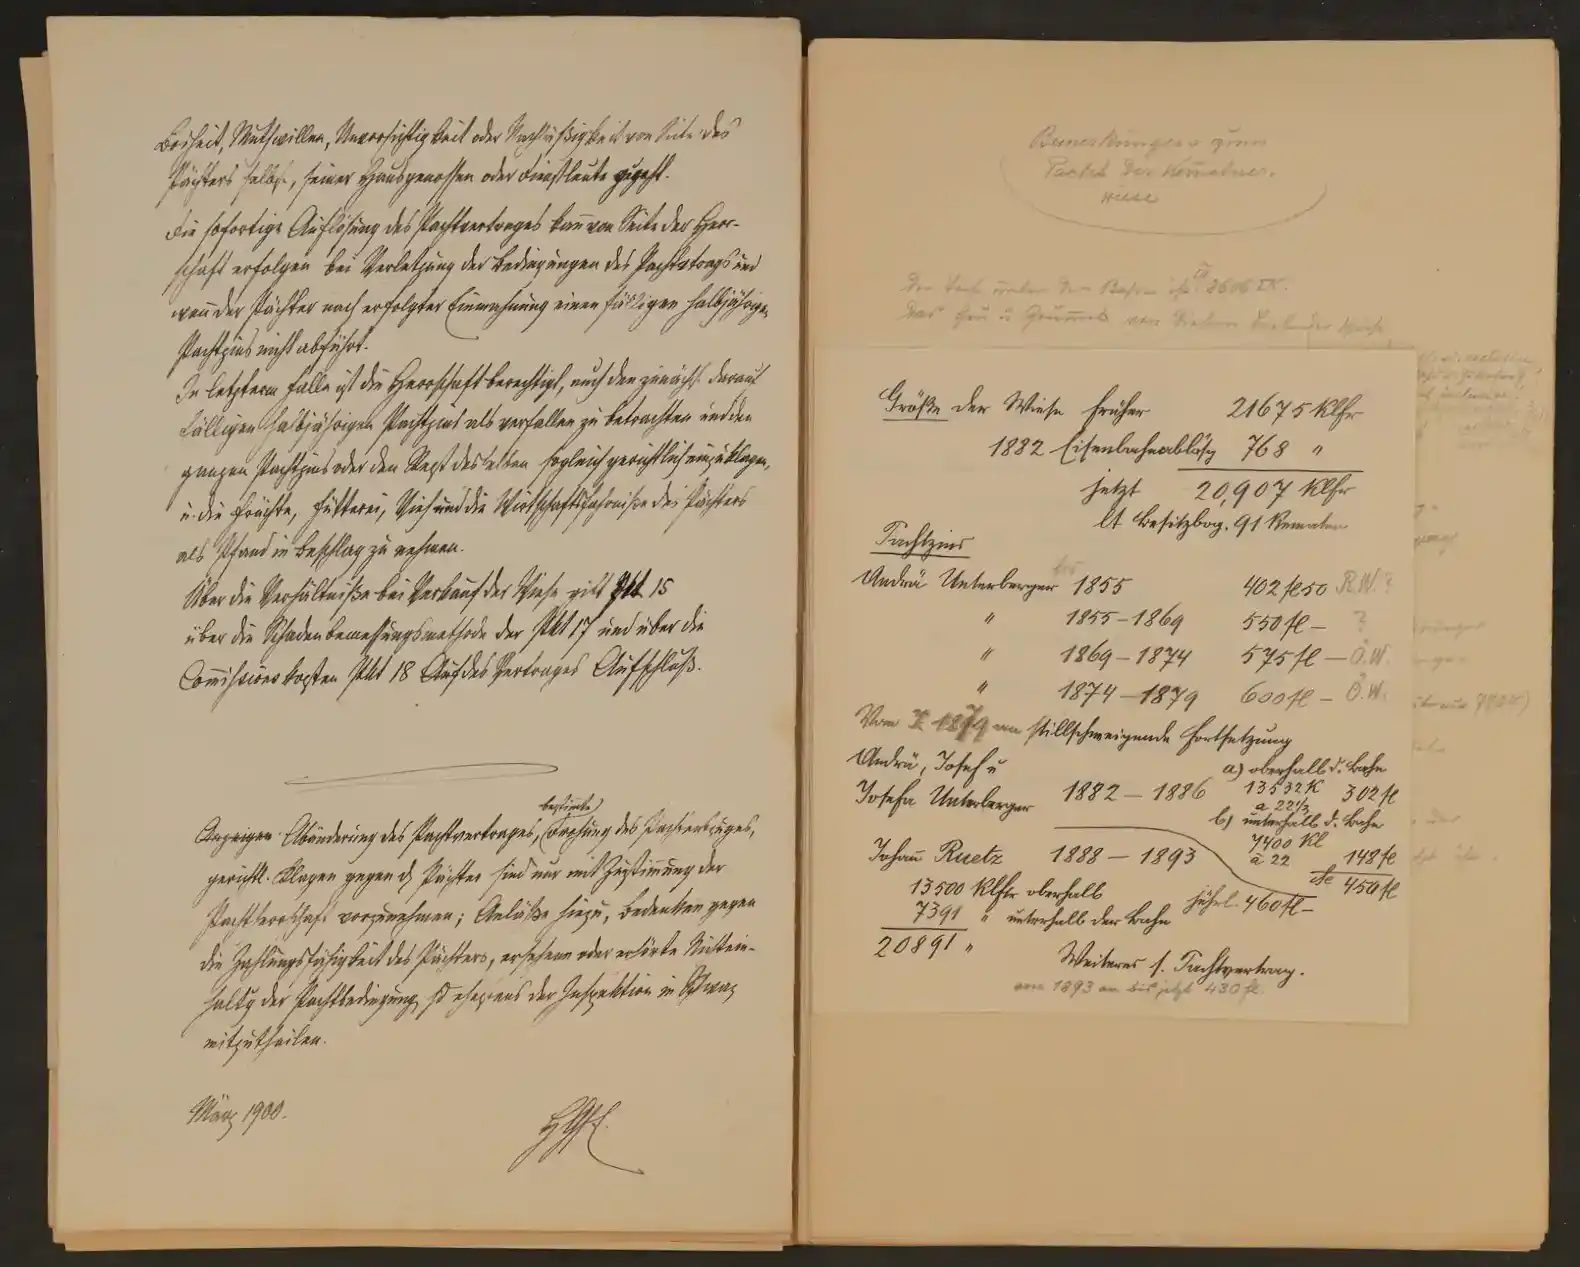 Bosheit, Muthwillen, Unvorsichtigkeit oder Nachläßigkeit von Seite des
Pächters selbst, seiner Hausgenossen oder Dienstleute zugeht.
Die sofortige Auflösung des Pachtvertrages kan̄ von Seite der Herr-
schaft erfolgen bei Verletzung der Bedingungen des Pachtvertrags und
wen̄ der Pächter nach erfolgter Einmahnung einen fälligen halbjährigen
Pachtzins nicht abführt.
In letzterm Falle ist die Herrschaft berechtigt, auch den zunächst darauf
fälligen halbjährigen Pachtzins als verfallen zu betrachten und den
ganzen Pachtzins oder den Rest desselben sogleich gerichtlich einzuklagen,
u. die Früchte, Fütterei, Vieh und die Wirtschaftsfahrniße des Pächters
als Pfand in Beschlag zu nehmen.
Über die Verhältniße bei Verkauf der Wiese gibt Pkt 15
über die Schadenbemessungsmethode der Pkt 17 und über die
Com̄issionskosten Pkt 18 des Vertrages Aufschluß.
bestim̄te
Anzeigen Abänderung des Pachtvertrages, Drohung des Pachtentzuges,
gerichtl. Klagen gegen d Pächter sind nur mit Zustim̄ung der
Pachtherrschaft vorzunehmen; Anläße hiezu, Bedenken gegen
die Zahlungsfähigkeit des Pächters, ersehene oder erhörte Nichtein-
haltg der Pachtbedingung sd ehestens der Inspektion in Schwaz
mitzutheilen.
März 1900.
Bemerkungen zum
Pacht der Kematner-
wiese
Größe der Wiese früher 21675 Klftr
1882 Eisenbahnablösg 768 "
jetzt 20,907 Klftr
lt Besitzbog. 91 Kematen
Pachtzins
Andrä Unterberger bis 1855 402 fl 50 R.W.?
" 1855–1869 550 fl – ?
" 1869–1874 575 fl – Ö.W.
" 1874–1879 600 fl – Ö.W.
Vom 1879 an stillschweigende Fortsetzung
Andrä, Josef u a) oberhalb d. Bahn
Josefa Unterberger 1882 – 1886 13532 K 302 fl
a 22⅓
b) unterhalb d. Bahn
7400 Kl
à 22 148 fl
450 fl
Johan̄ Ruetz 1888 – 1893
13500 Klftr oberhalb jährl. 460 fl –
7391 " unterhalb der Bahn
20891 "
Weiteres s. Pachtvertrag.
von 1893 an bis jetzt 430 fl.